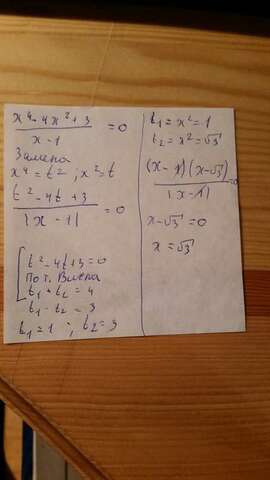 x⁴-4x²+3
/ x-1 = 0
Замена
x⁴=t², x²=t
t²-4t+3
/ |x-1| = 0
t²-4t+3=0
По т. Виета
t₁+t₂=4
t₁·t₂=3
t₁=1; t₂=3
t₁=x²=1
t₂=x²=√3
(x-1)(x-√3)
/ |x-1| =0
x-√3=0
x=√3